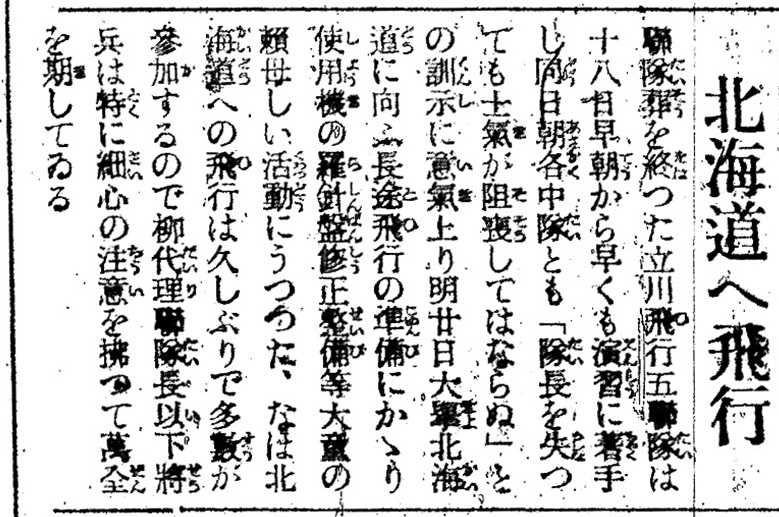 北海道へ飛行
聯隊葬を終つた立川飛行五聯隊は
十八日早朝から早くも演習に著手
し同日朝各中隊とも「隊長を失つ
ても士氣が阻喪してはならぬ」と
の訓示に意氣上り明廿日大擧北海
道に向ふ長途飛行の準備にかゝり
使用機の羅針盤修正整備等大童の
頼母しい活動にうつつた、なほ北
海道への飛行は久しぶりで多數が
參加するので柳代理聯隊長以下將
兵は特に細心の注意を拂つて萬全
を期してゐる